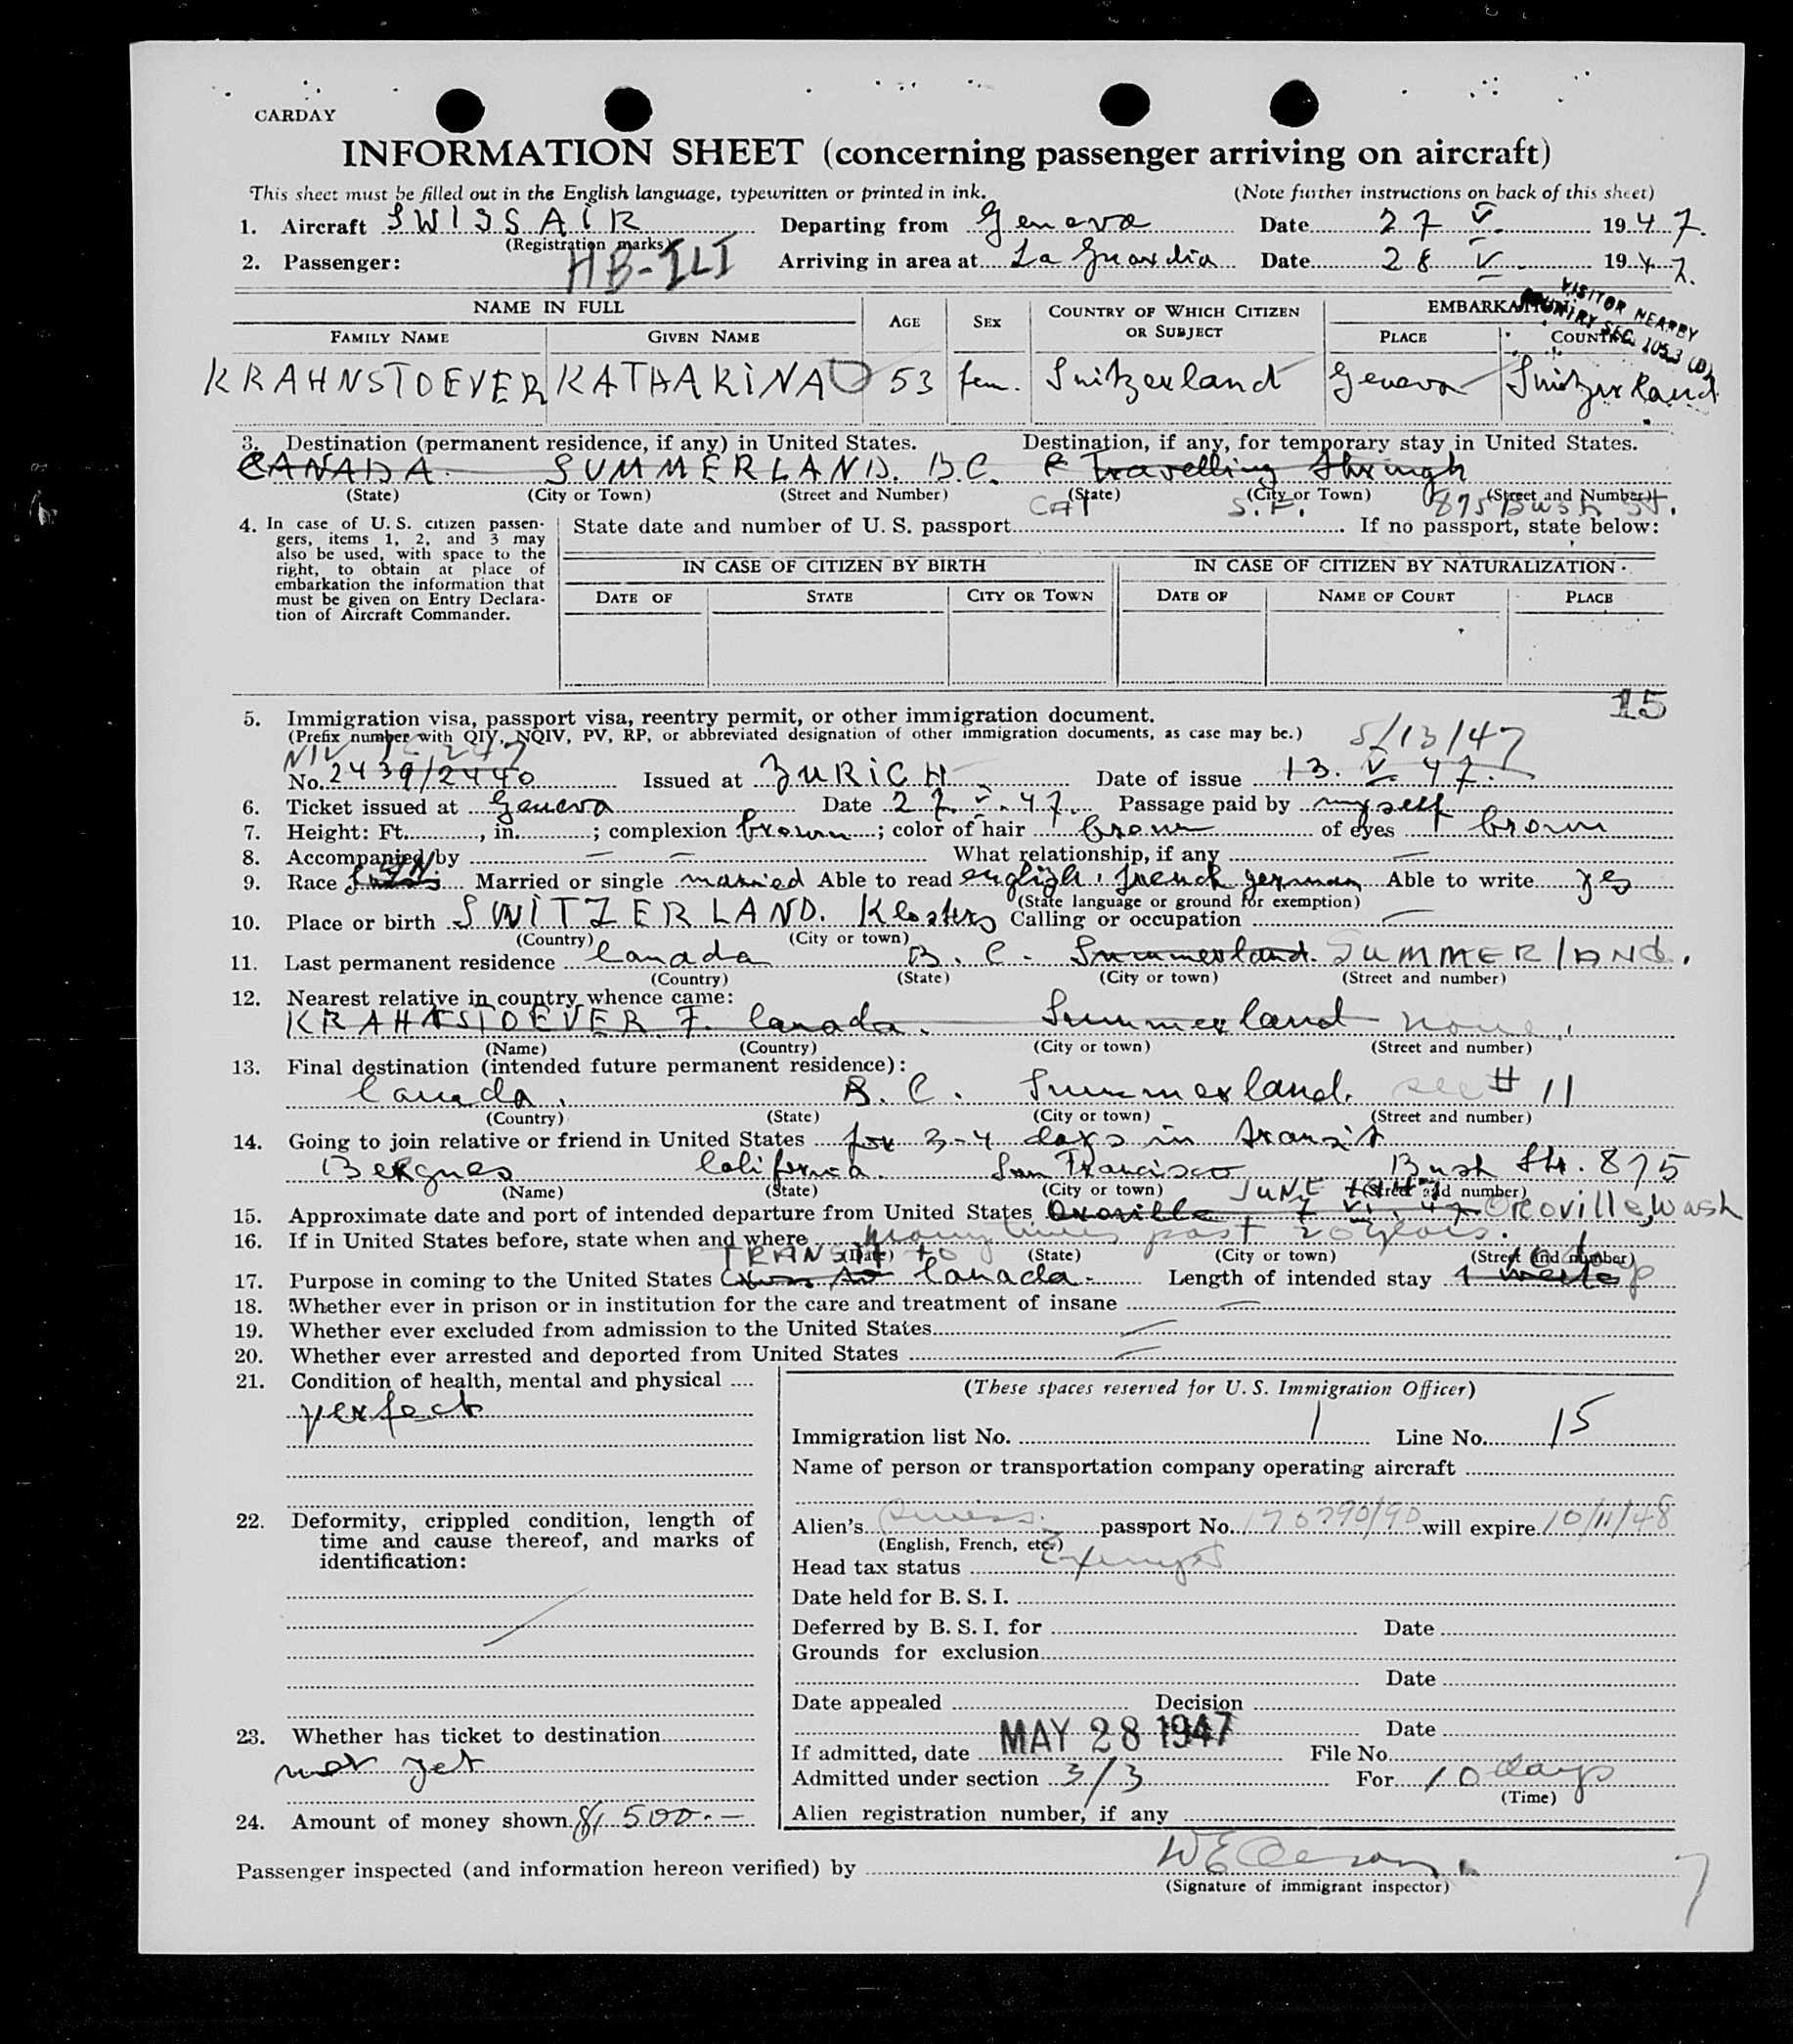 CARDAY
INFORMATION SHEET (concerning passenger arriving on aircraft)
This sheet must be filled out in the English language, typewritten or printed in ink. (Note further instructions on back of this sheet)
1. Aircraft SWISSAIR Departing from Geneva Date 27 V. 1947.
(Registration marks)
2. Passenger: HB-ILI Arriving in area at La Guardia Date 28 V 1947.
VISITOR NEARBY
COUNTRY SEC. 105.3 (B)
NAME IN FULL AGE SEX COUNTRY OF WHICH CITIZEN OR SUBJECT EMBARKATION
FAMILY NAME GIVEN NAME PLACE COUNTRY
KRAHNSTOEVER KATHARINA 53 fem. Switzerland Geneva Switzerland
3. Destination (permanent residence, if any) in United States. Destination, if any, for temporary stay in United States.
CANADA. SUMMERLAND. B.C. Travelling through
(State) (City or Town) (Street and Number) (State) (City or Town) (Street and Number)
CAL S.F. 875 Bush St.
4. In case of U.S. citizen passengers, items 1, 2, and 3 may also be used, with space to the right, to obtain at place of embarkation the information that must be given on Entry Declaration of Aircraft Commander.
State date and number of U. S. passport If no passport, state below:
IN CASE OF CITIZEN BY BIRTH IN CASE OF CITIZEN BY NATURALIZATION
DATE OF STATE CITY OR TOWN DATE OF NAME OF COURT PLACE
15
5. Immigration visa, passport visa, reentry permit, or other immigration document.
(Prefix number with QIV, NQIV, PV, RP, or abbreviated designation of other immigration documents, as case may be.)
NIV 5/13/47
No. 2439/2440 Issued at ZURICH Date of issue 13. V. 47.
6. Ticket issued at Geneva Date 27. V. 47. Passage paid by myself
7. Height: Ft. , in. ; complexion brown ; color of hair brown of eyes brown
8. Accompanied by — — What relationship, if any —
9. Race Married or single married Able to read english, french german Able to write yes
(State language or ground for exemption)
10. Place or birth SWITZERLAND. Klosters Calling or occupation —
(Country) (City or town)
11. Last permanent residence Canada B. C. Summerland. SUMMERLAND.
(Country) (State) (City or town) (Street and number)
12. Nearest relative in country whence came:
KRAHNSTOEVER F. Canada. Summerland none.
(Name) (Country) (City or town) (Street and number)
13. Final destination (intended future permanent residence):
Canada. B. C. Summerland. see # 11
(Country) (State) (City or town) (Street and number)
14. Going to join relative or friend in United States for 3-4 days in transit
Bergues California. San Francisco Bush Str. 875
(Name) (State) (City or town) (Street and number)
JUNE
15. Approximate date and port of intended departure from United States Oroville 7 VI. 47 Oroville, Wash
16. If in United States before, state when and where many times past 20 years.
(Date) (State) (City or town) (Street and number)
TRANSIT to
17. Purpose in coming to the United States Canada. Length of intended stay
18. Whether ever in prison or in institution for the care and treatment of insane —
19. Whether ever excluded from admission to the United States —
20. Whether ever arrested and deported from United States —
21. Condition of health, mental and physical
perfect
22. Deformity, crippled condition, length of time and cause thereof, and marks of identification:
23. Whether has ticket to destination
not yet
24. Amount of money shown $ 500.—
(These spaces reserved for U. S. Immigration Officer)
Immigration list No. 1 Line No. 15
Name of person or transportation company operating aircraft
Alien's Swiss passport No. 170790/90 will expire 10/11/48
(English, French, etc.)
Head tax status Exempt
Date held for B. S. I.
Deferred by B. S. I. for Date
Grounds for exclusion
Date
Date appealed Decision
Date
If admitted, date MAY 28 1947 File No.
Admitted under section 3/3 For 10 days
(Time)
Alien registration number, if any
Passenger inspected (and information hereon verified) by
(Signature of immigrant inspector)
7